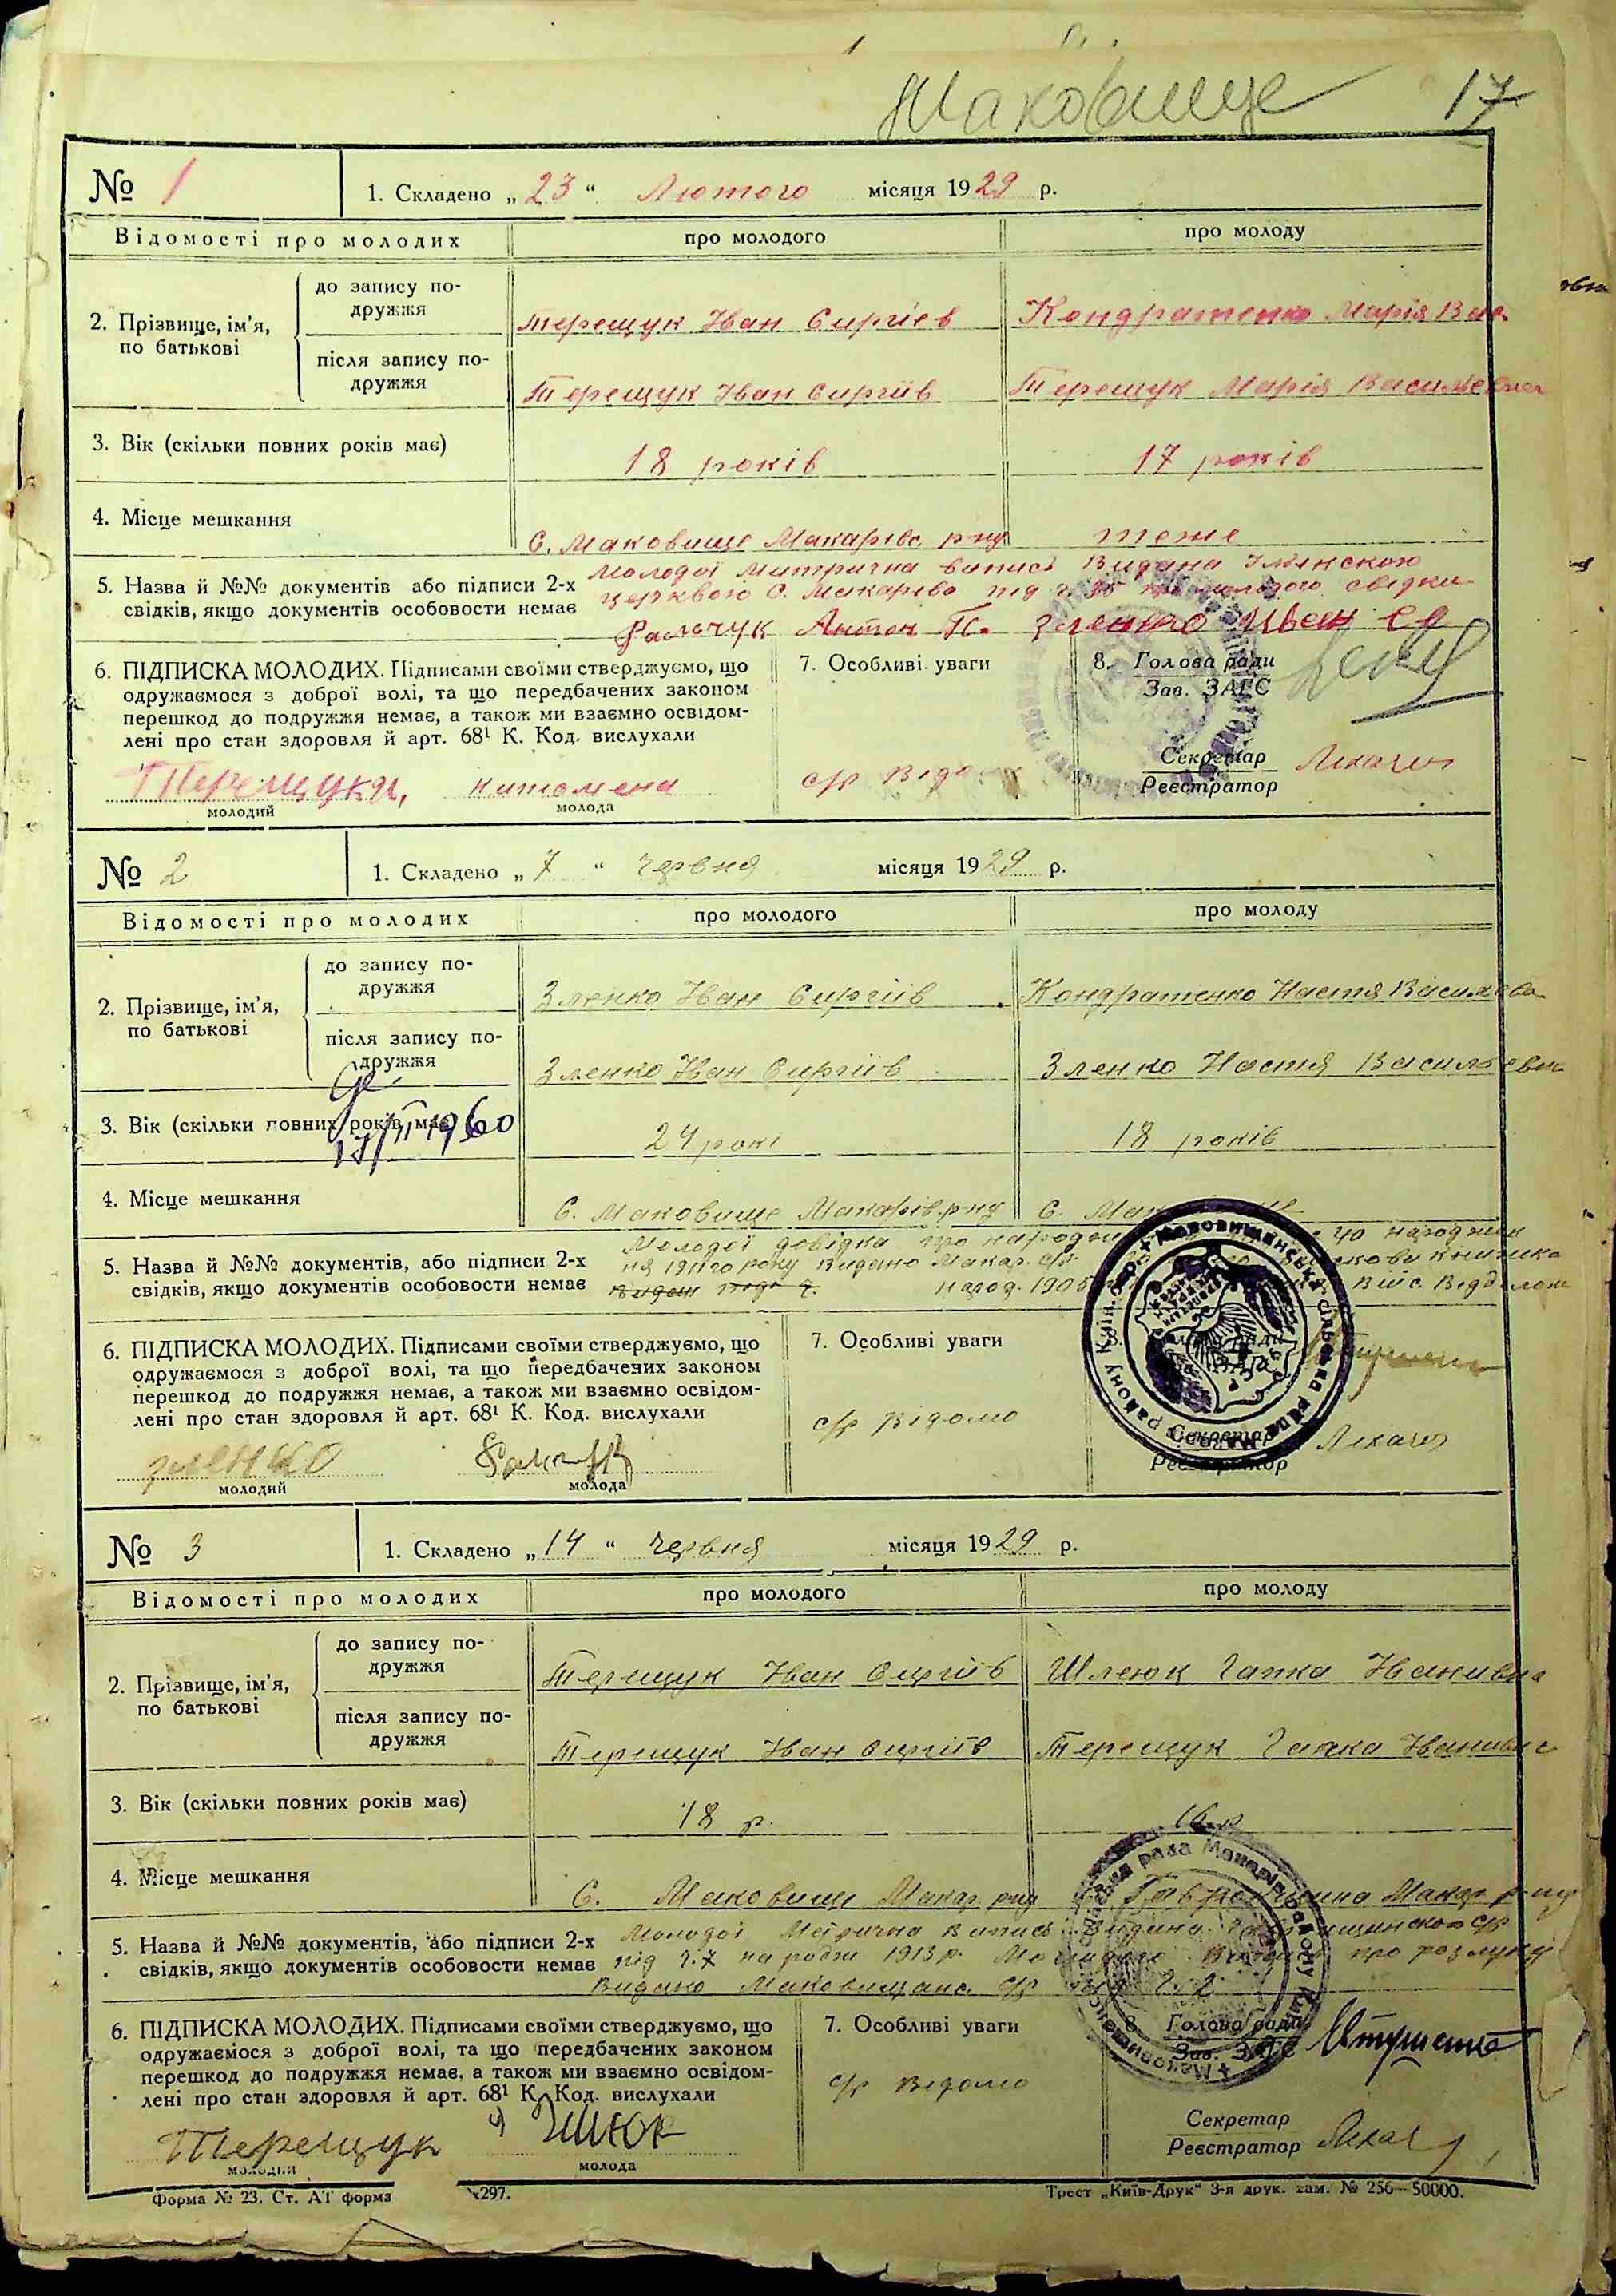 Маковище 17
№ 1 1. Складено „ 23 “ Лютого місяця 1929 р.
Відомості про молодих про молодого про молоду
2. Прізвище, ім’я, по батькові
до запису подружжя Терещук Іван Сиргієв Кондратенко Марія Вас
після запису подружжя Терещук Іван Сиргіїв Терещук Марія Васильевна
3. Вік (скільки повних років має) 18 років 17 років
4. Місце мешкання С. Маковище Макарівс. р-ну тоже
5. Назва й №№ документів або підписи 2-х Молодої Митрична випись Видана
свідків, якщо документів особовости немає церквою С. Макарїва під молодого свідки
Фальчук Антон П. Зленко Иван
6. ПІДПИСКА МОЛОДИХ. Підписами своїми стверджуємо, що
одружаємося з доброї волі, та що передбачених законом
перешкод до подружжя немає, а також ми взаємно освідом-
лені про стан здоровля й арт. 68¹ К. Код. вислухали
7. Особливі уваги
8. Голова ради
Зав. ЗАГС
с/р Відо
Секретар
Реєстратор
Терещук неписмена
молодий молода
№ 2 1. Складено „ 7 “ червня місяця 1929 р.
Відомості про молодих про молодого про молоду
2. Прізвище, ім’я, по батькові
до запису подружжя Зленко Іван Сиргіїв Кондратенко Настя Васильева
після запису подружжя Зленко Іван Сиргіїв Зленко Настя Васильевна
3. Вік (скільки повних років має) 24 рокі 18 років
1960
4. Місце мешкання С. Маковище Макарів. р-ну С. Ма
5. Назва й №№ документів, або підписи 2-х Молодої довідка про народже народжен
свідків, якщо документів особовости немає ня 1911го року видано Макар. с/р книжка
народ. 1905 Війс. Відділом
6. ПІДПИСКА МОЛОДИХ. Підписами своїми стверджуємо, що
одружаємося з доброї волі, та що передбачених законом
перешкод до подружжя немає, а також ми взаємно освідом-
лені про стан здоровля й арт. 68¹ К. Код. вислухали
7. Особливі уваги
с/р Відомо
Секретар
Реєстратор
зленко
молодий молода
№ 3 1. Складено „ 14 “ червня місяця 1929 р.
Відомості про молодих про молодого про молоду
2. Прізвище, ім’я, по батькові
до запису подружжя Терещук Іван Сиргіїв Шлеюк Гапка Іванивна
після запису подружжя Терещук Іван Сиргіїв Терещук Гапка Іванивна
3. Вік (скільки повних років має) 18 р. 16 р
4. Місце мешкання С. Маковище Макар. р-ну Макар р-ну
5. Назва й №№ документів, або підписи 2-х Молодої Метрична Випись Видана с/р
свідків, якщо документів особовости немає під ч. 7 народж 1913 р. про розлуку
Видано Маковищанс. с/р
6. ПІДПИСКА МОЛОДИХ. Підписами своїми стверджуємо, що
одружаємося з доброї волі, та що передбачених законом
перешкод до подружжя немає, а також ми взаємно освідом-
лені про стан здоровля й арт. 68¹ К. Код. вислухали
7. Особливі уваги
8. Голова ради
Зав. ЗАГС
с/р Відомо
Секретар
Реєстратор
Терещук
молодий молода
Форма № 23. Ст. А1 форма 297. Трест „Київ-Друк“ 3-я друк. зам. № 256—50000.